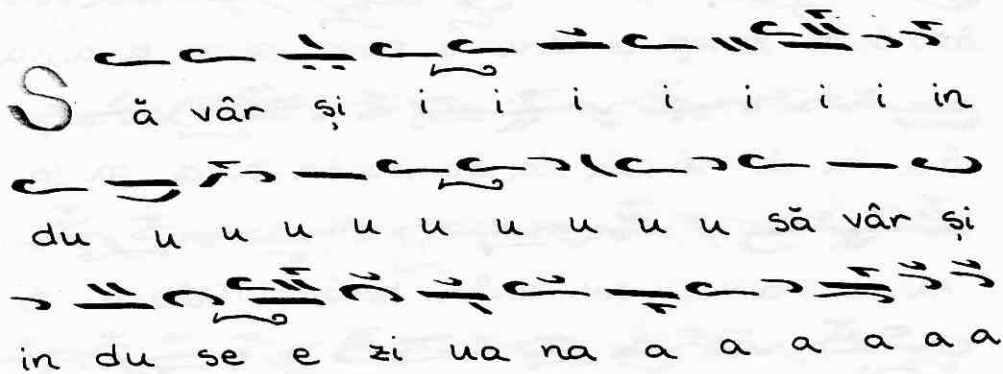 Să vâr și i i i i i i i in
du u u u u u u u u u să vâr și
in du se e zi ua na a a a a a a